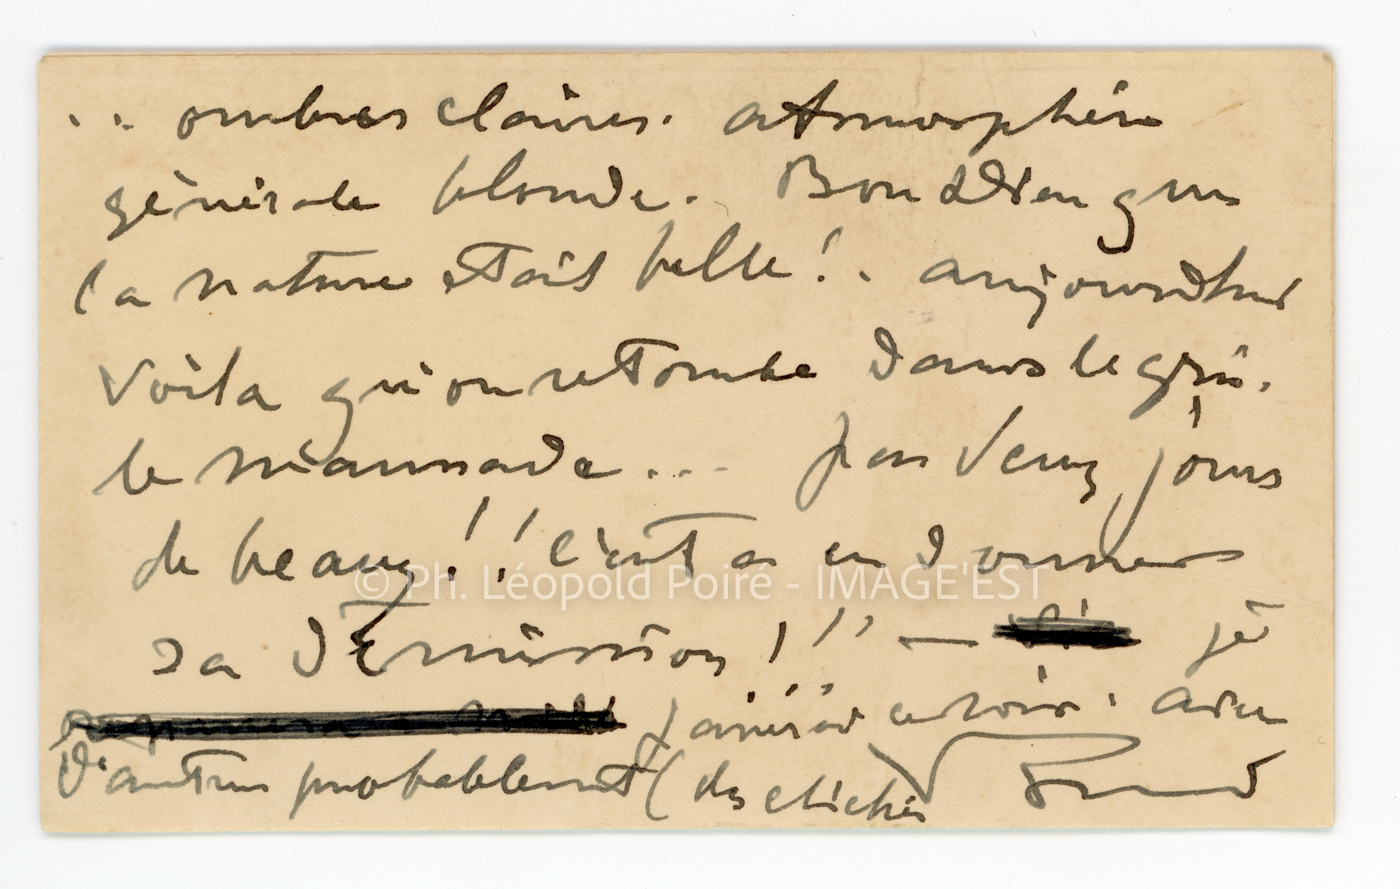 .. ombres claires. atmosphère
générale blonde. Bon Dieu que
la nature était belle! . aujourd'hui
Voilà qu'on retombe dans le gris.
le maussade ... pas deux jours
de beaux!! c'est à en donner
sa Démission!!! — je
ce soir. avec
d'autres probablement (des clichés
© Ph. Léopold Poiré - IMAGE'EST